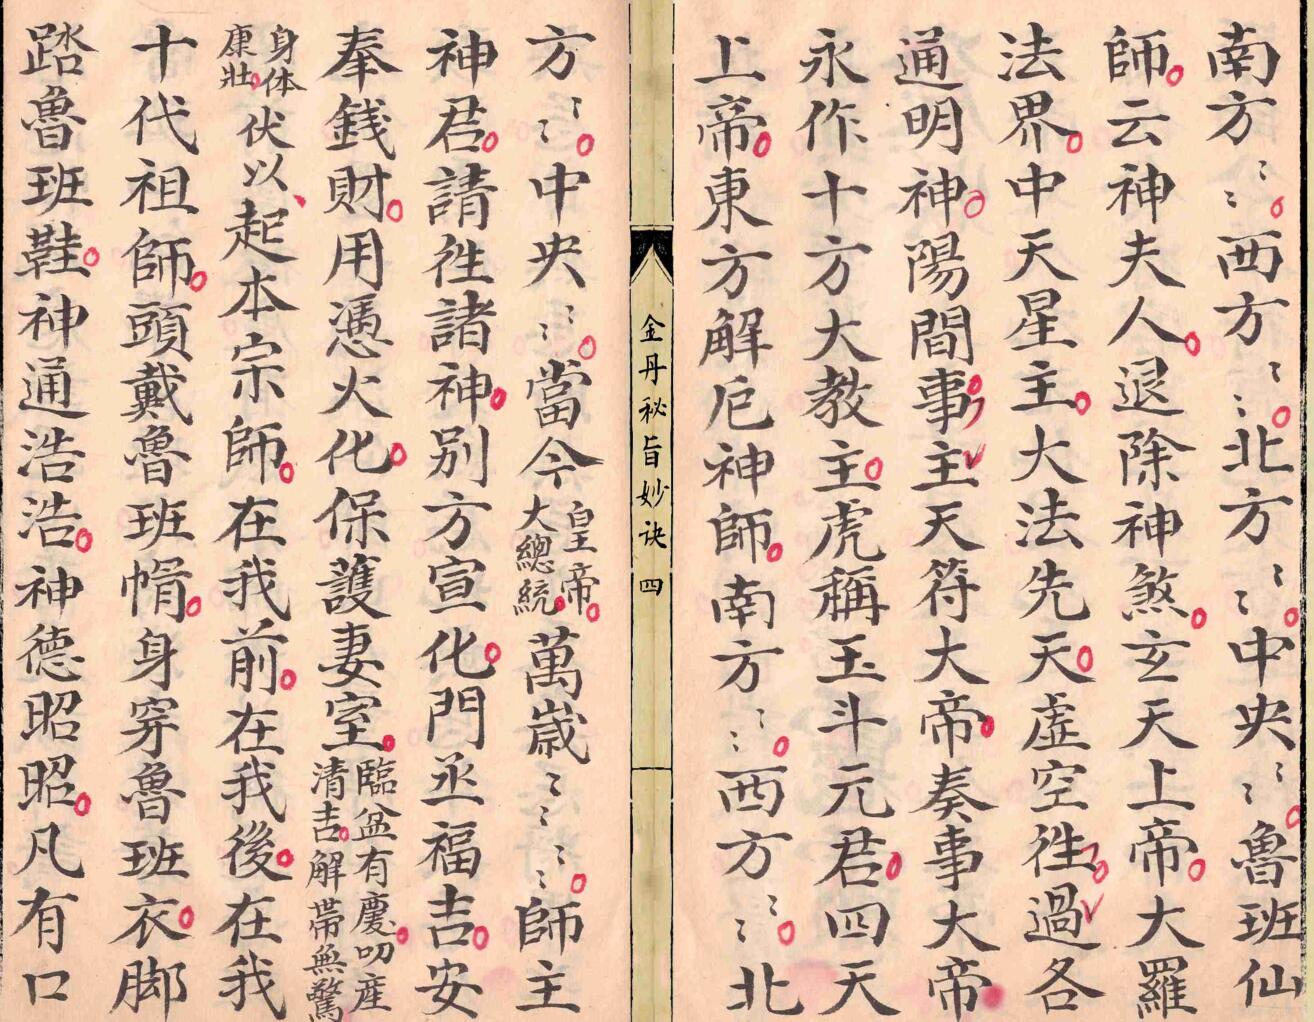 南方〻〻西方〻〻北方〻〻中央〻〻魯班仙
師云神夫人退除神煞玄天上帝大羅
法界中天星主大法先天虛空徃過各
通明神陽間事主天符大帝奏事大帝
永作十方大教主虎稱玉斗元君四天
上帝東方解厄神師南方〻〻西方〻〻北
金丹秘旨妙訣 四
方〻〻中央〻〻當今皇帝大總統萬歲〻〻〻〻師主
神君請徃諸神別方宣化門丞福吉安
奉銭財用憑火化保護妻室臨盆有慶叨産清吉解帯無驚
身体康壯伏以起本宗師在我前在我後在我
十代祖師頭戴魯班㡏身穿魯班衣脚
踏魯班鞋神通浩浩神德昭昭凡有口